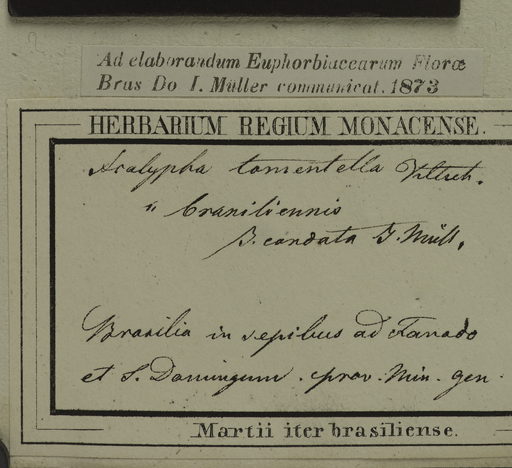 Ad elaborandum Euphorbiacearum Floræ
Bras Do I. Müller communicat. 1873
HERBARIUM REGIUM MONACENSE.
Acalypha tomentella
" brasiliensis
β. caudata J. Müll.
Brasilia in sepibus ad Fanado
et S. Domingum. prov. Min. gen.
Martii iter brasiliense.